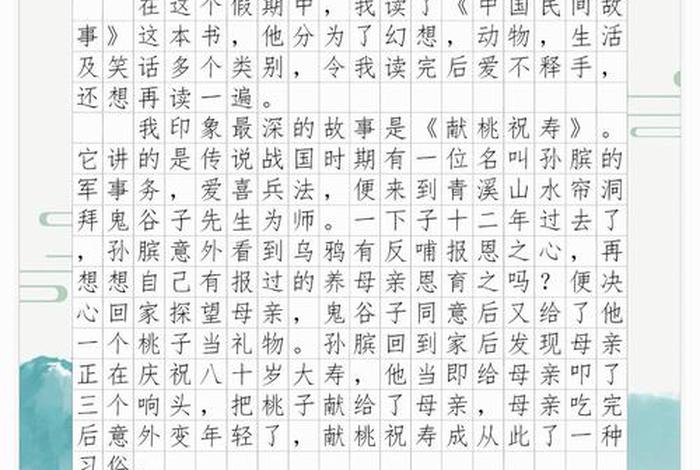 在这个假期中，我读了《中国民间故
事》这本书，他分为了幻想，动物，生活
及笑话多个类别，令我读完后爱不释手，
还想再读一遍。
我印象最深的故事是《献桃祝寿》。
它讲的是传说战国时期有一位名叫孙膑的
军事务，爱喜兵法，便来到青溪山水帘洞
拜鬼谷子先生为师。一下子十二年过去了
，孙膑意外看到乌鸦有反哺报恩之心，再
想想自己有报过的养母亲恩育之吗？便决
心回家探望母亲，鬼谷子同意后又给了他
一个桃子当礼物。孙膑回到家后发现母亲
正在庆祝八十岁大寿，他当即给母亲叩了
三个响头，把桃子献给了母亲，母亲吃完
后意外变年轻了，献桃祝寿成从此了一种
习俗。